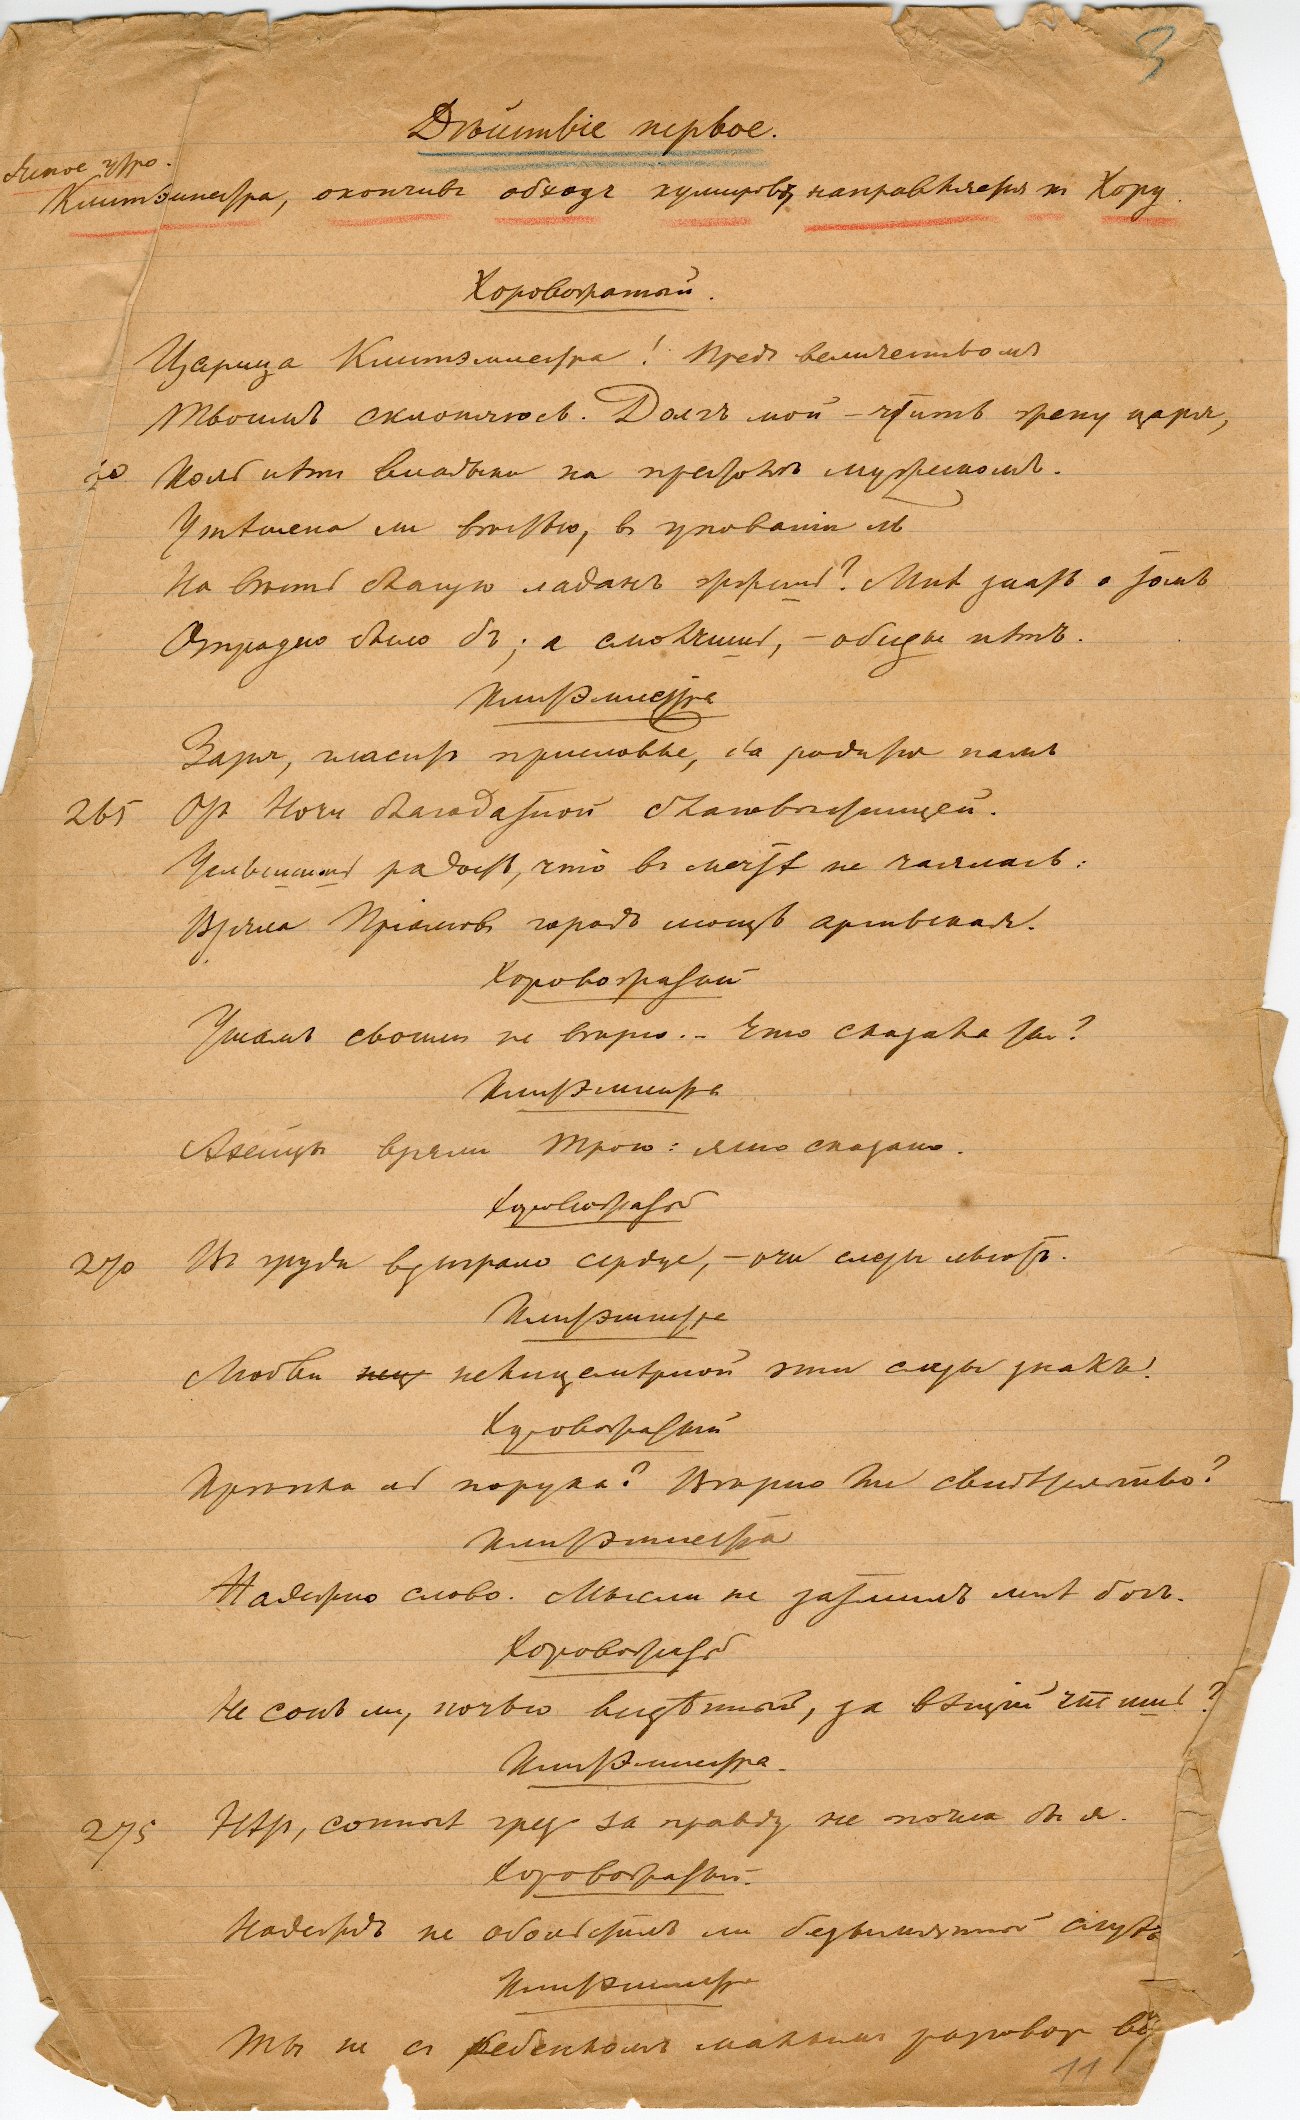 3
Дѣйствіе первое.
Ясное утро.
Клитэмнестра, окончивъ обходъ кумировъ, направляется къ Хору.
Хоровожатый.
Царица Клитэмнестра! Предъ величествомъ
Твоимъ склоняюсь. Долгъ мой – чтить жену царя,
Коль нѣтъ владыки на престолѣ мужескомъ.
Утѣшена ли вѣстью, въ упованіи ль
На вѣсть благую ладанъ жжешь? Мнѣ знать о томъ
Отрадно было бъ; а смолчишь, – обиды нѣтъ.
Клитэмнестра
Заря, гласитъ присловье, да родится намъ
265 Отъ Ночи благодатной благовѣстницей.
Услышишь радость, что въ мечтѣ не чаялась:
Взяла Пріамовъ городъ мощь аргивская.
Хоровожатый
Ушамъ своимъ не вѣрю.. Что сказала ты?
Клитэмнестра
Ахейцы взяли Трою: ясно сказано.
Хоровожатый
270 Въ груди взыграло сердце, – очи слезы льютъ.
Клитэмнестра
Любви нелицемѣрной эти слезы знакъ.
Хоровожатый
порука? Вѣрно ли свидѣтельство?
Клитэмнестра
Надежно слово. Мысли не затмилъ мнѣ богъ.
Хоровожатый
Не сонъ ли, ночью видѣнный, за вѣщій чтишь?
Клитэмнестра.
275 Нѣтъ, сонныхъ грезъ за правду не почла бы я.
Хоровожатый.
Надеждъ не обольстилъ ли безымянный слухъ
Клитэмнестра
Ты не съ ребенкомъ малымъ разговоръ
11